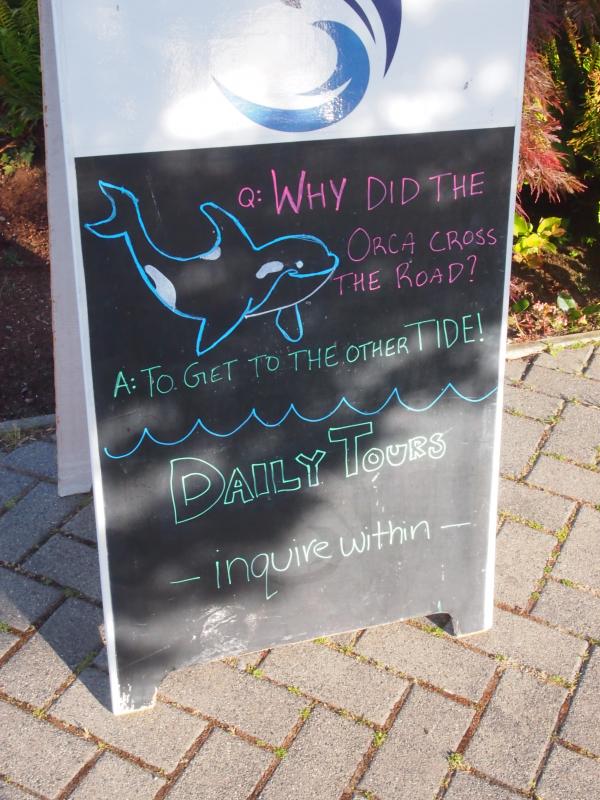 Q: WHY DID THE
ORCA CROSS
THE ROAD?
A: TO GET TO THE OTHER TIDE!
DAILY TOURS
- inquire within -